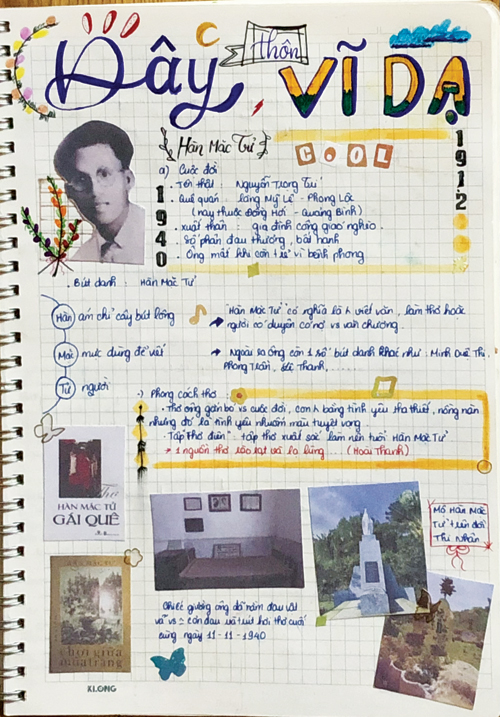 Đây thôn VĨ DẠ
Hàn Mặc Tử
COOL
1912
1940
a) Cuộc đời
. Tên thật : Nguyễn Trọng Trí
. Quê quán : làng Mỹ Lệ - Phong Lộc
(nay thuộc Đồng Hới - Quảng Bình)
. xuất thân : gia đình công giáo nghèo
. số phận đau thương, bất hạnh
. Ông mất khi còn trẻ vì bệnh phong
. Bút danh : Hàn Mặc Tử
Hàn ám chỉ cây bút lông
Mặc mực dùng để viết
Tử người
"Hàn Mặc Tử" có nghĩa là n viết văn, làm thơ hoặc
người có duyên cơ nợ vs văn chương.
→ Ngoài ra ông còn 1 số bút danh khác như : Minh Duệ Thị,
Phong Trần, Lệ Thanh,......
Phong cách thơ
. Thơ ông gắn bó vs cuộc đời, con n bằng tình yêu tha thiết, nồng nàn
nhưng đó là tình yêu nhuốm màu tuyệt vọng
. Tập "Thơ điên" tập thơ xuất sắc làm nên tuổi Hàn Mặc Tử
→ 1 nguồn thơ rào rạt và lạ lùng. (Hoài Thanh)
Thơ
HÀN MẶC TỬ
GÁI QUÊ
HÀN MẶC TỬ
Chơi giữa
mùa trăng
Mộ Hàn Mặc
Tử trên đồi
Thi Nhân
Chiếc giường ông đã nằm đau vật
vã vs cơn đau và trút hơi thở cuối
cùng ngày 11-11-1940
KLONG